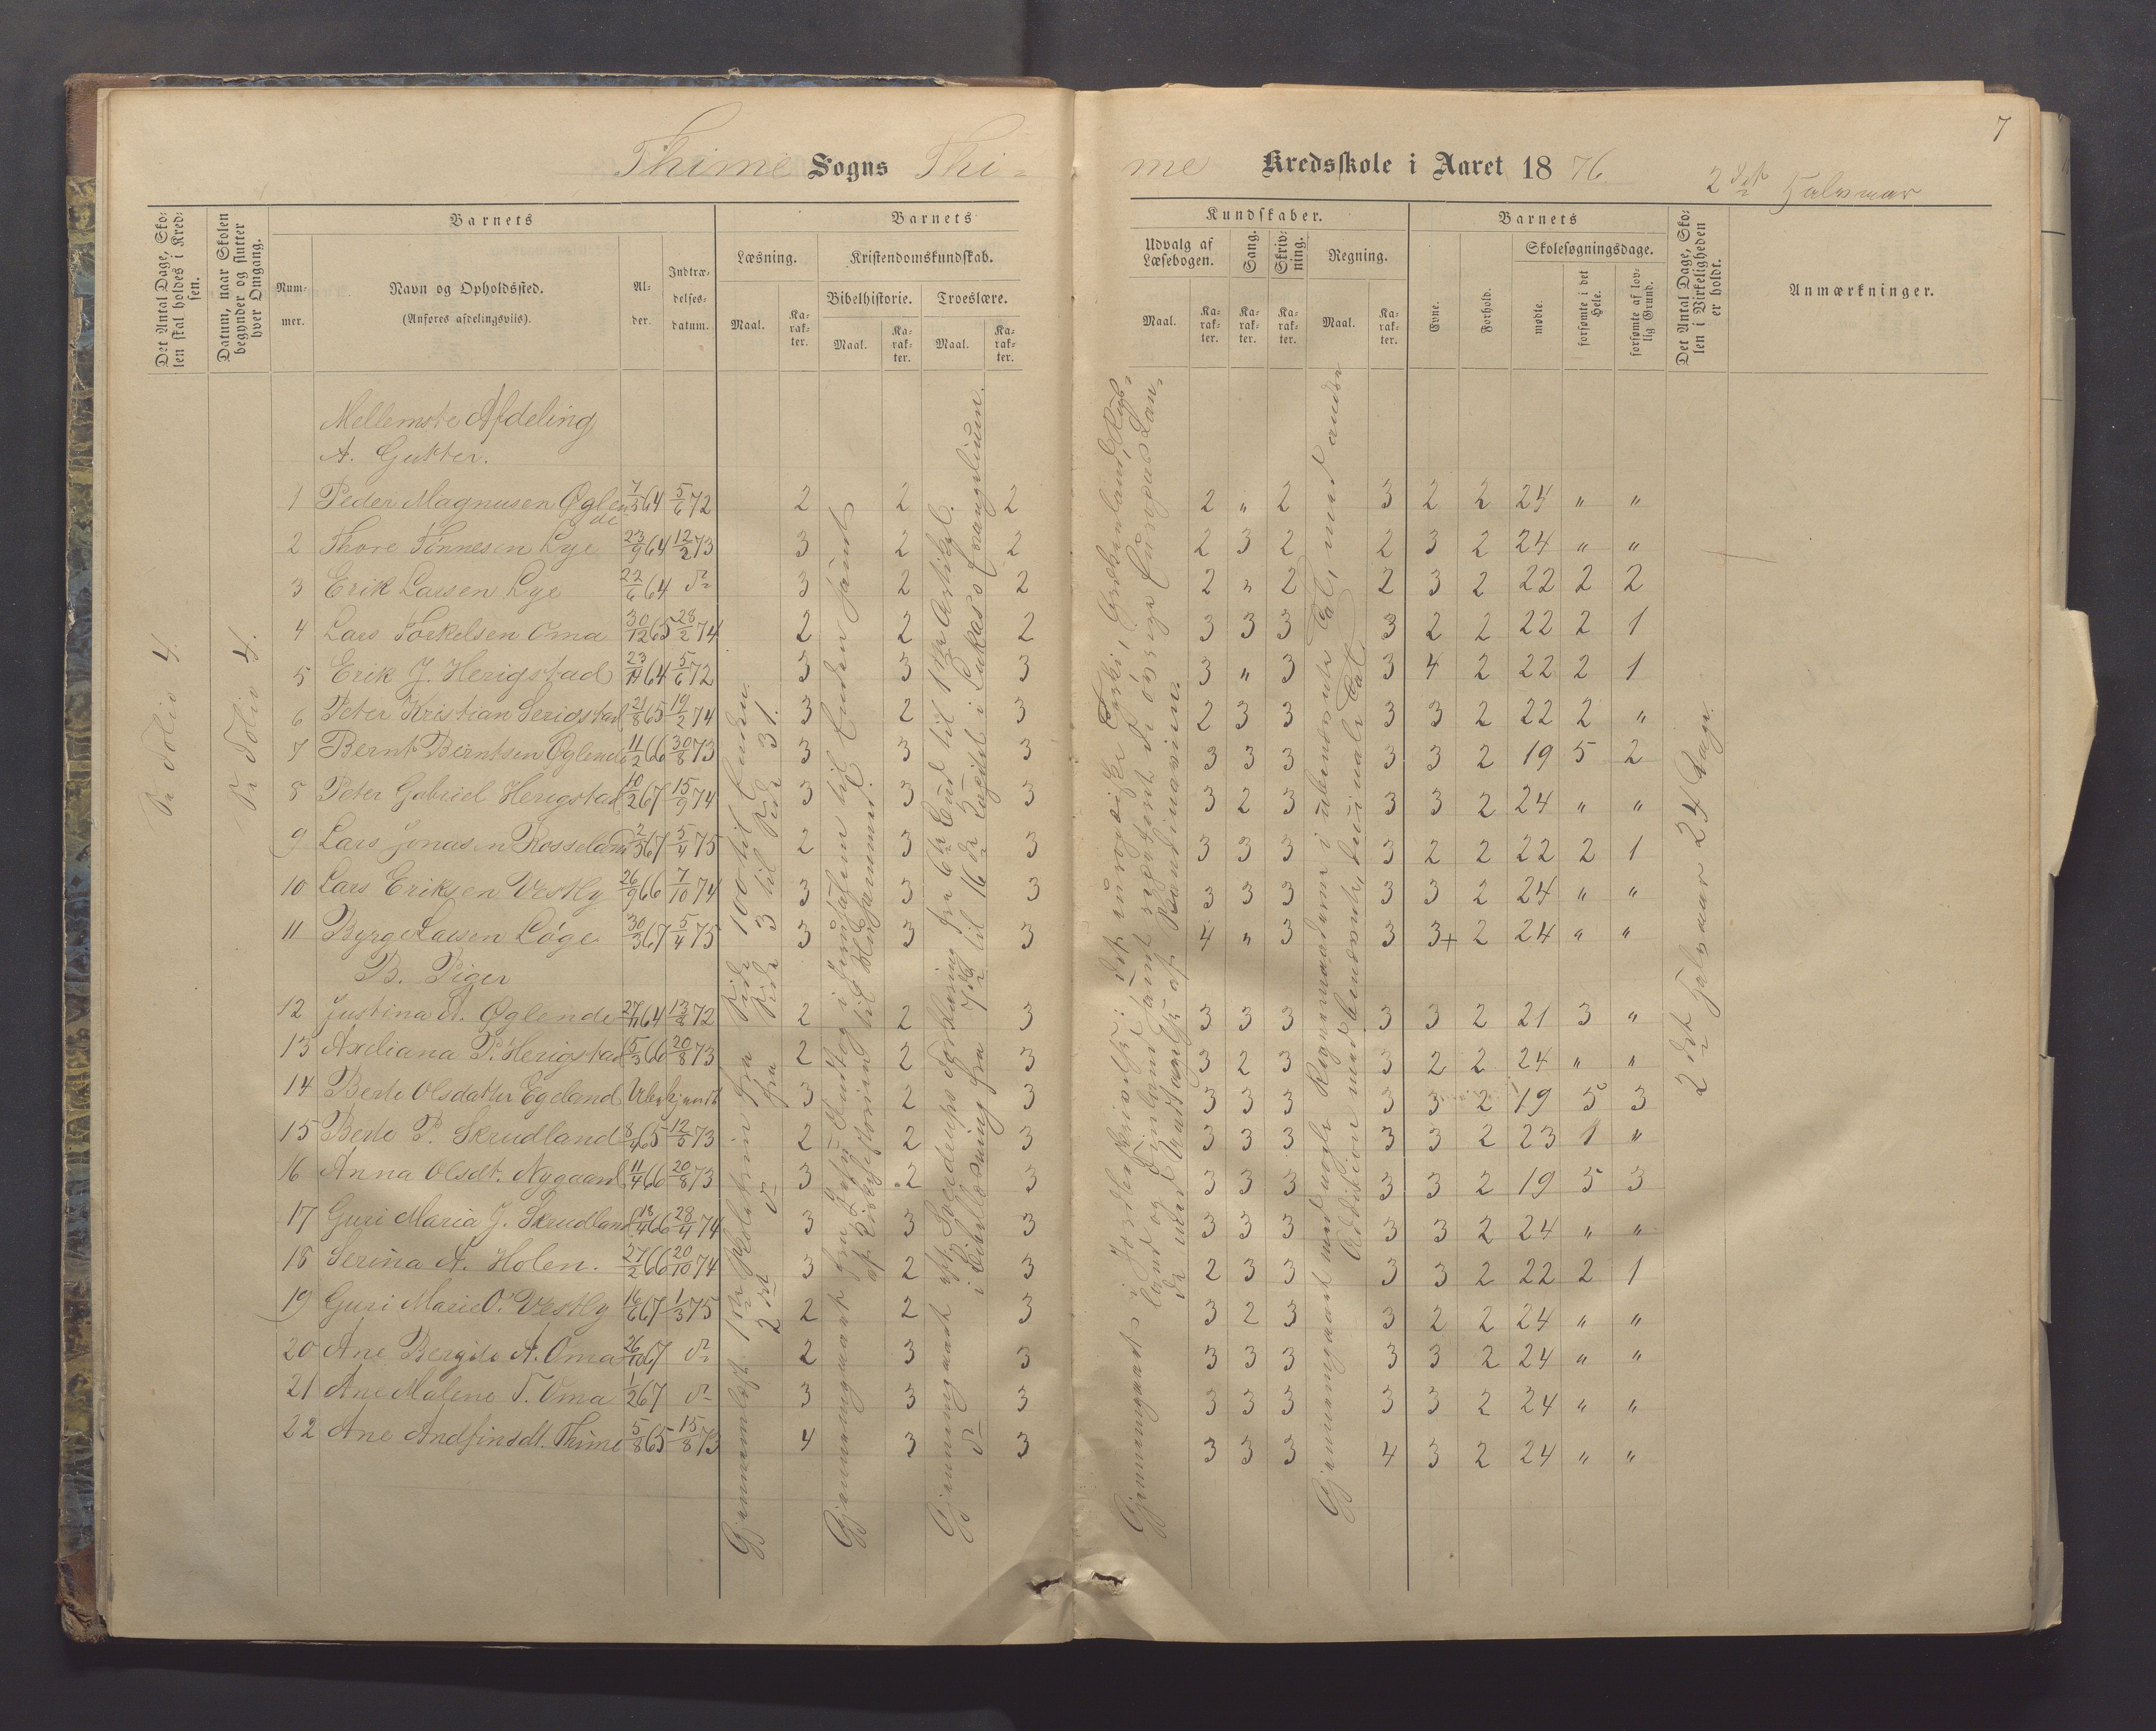 7
Thime Sogns Thi-
me Kredsskole i Aaret 1876.
2det Halvaar
Det Antal Dage, Skolen skal holdes i Kredsen.
Datum, naar Skolen begynder og slutter hver Omgang.
Barnets
Nummer.
Navn og Opholdssted.
(Anføres afdelingsviis).
Alder.
Indtrædelsesdatum.
Barnets
Læsning.
Maal.
Karakter.
Kristendomskundskab.
Bibelhistorie.
Maal.
Karakter.
Troeslære.
Maal.
Karakter.
Kundskaber.
Udvalg af Læsebogen.
Maal.
Karakter.
Sang.
Karakter.
Skrivning.
Karakter.
Regning.
Maal.
Karakter.
Barnets
Evne.
Forhold.
Skolesøgningsdage.
mødte.
forsømte i det Hele.
forsømte af lovlig Grund.
Det Antal Dage, Skolen i Virkeligheden er holdt.
Anmærkninger.
Folio 4.
Folio 4.
Mellemste Afdeling
A. Gutter.
1 Peder Magnusen Øglende 7/5 64 5/6 72 2 2 2 2 " 2 3 2 2 24 " "
2 Thore Tønnesen Lye 23/9 64 12/2 73 3 2 2 2 3 2 2 3 2 24 " "
3 Erik Larsen Lye 22/6 64 do 3 2 2 2 " 2 2 3 2 22 2 2
4 Lars Torkelsen Oma 30/12 65 28/2 74 2 2 2 3 3 3 3 2 2 22 2 1
5 Erik J. Herigstad 23/11 64 5/6 72 3 3 3 3 " 3 3 4 2 22 2 1
6 Peter Kristian Serigstad 21/8 65 19/2 74 3 2 3 2 3 3 3 3 2 22 2 "
7 Bernt Berntsen Øglend 11/2 66 30/8 73 3 3 3 3 3 3 3 3 2 19 5 2
8 Peter Gabriel Herigstad 10/2 67 15/9 74 3 3 3 3 2 3 3 3 2 24 " "
9 Lars Jonasen Rosseland 2/3 67 5/4 75 2 3 3 3 3 3 3 2 2 22 2 1
10 Lars Eriksen Vestly 26/9 66 7/10 74 3 3 3 3 3 3 3 3 2 24 " "
11 Byrge Larsen Løge 30/3 67 5/4 75 3 3 3 4 " 3 3 3+ 2 24 " "
B. Piger
12 Justina A. Øglende 27/11 64 13/8 72 2 2 3 3 3 3 3 3 2 21 3 "
13 Axeliana P. Herigstad 5/3 66 20/8 73 2 2 3 3 2 3 3 2 2 24 " "
14 Berte Olsdatter Egeland Ubekjendt 3 2 3 3 3 3 3 3 2 19 5 3
15 Berte P. Skrudland 8/4 65 12/5 73 2 2 3 3 3 3 3 3 2 23 1 "
16 Anna Olsdt. Nygaard 11/4 66 20/8 73 3 2 3 3 3 3 3 3 2 19 5 3
17 Guri Maria J. Skrudland 18/4 66 28/4 74 3 3 3 3 3 3 3 3 2 24 " "
18 Serina A. Holen. 27/2 66 20/10 74 3 2 3 2 3 3 3 3 2 22 2 1
19 Guri Marie O. Vestly 16/6 67 1/3 75 2 2 3 3 2 3 3 2 2 24 " "
20 Ane Bergite A. Oma 26/10 67 do 2 3 3 3 3 3 3 3 2 24 " "
21 Ane Malene T. Oma 1/2 67 do 3 3 3 3 3 3 3 3 2 24 " "
22 Ane Andfinsdt. Thime 5/8 65 15/8 73 4 3 3 3 3 3 4 3 2 24 " "
Gjennemlæst 1ste Skoletrin fra Side 100 til Enden
2det do fra Side 3 til Side 31.
Gjennemgaaet fra Jesu Indtog i Jerusalem til Enden samt
af Kirkehistorien til
Gjennemgaaet af Forklaring fra 6te Bud til 1ste Artikel.
do i Bibellæsning fra 7de til 16de Kapitel i Lukas's Evangelium.
Gjennemgaaet i Jordbeskrivelse: det europæiske Tyrki, Grækenland, Rusland
og Finland samt repeteret de øvrige Europas Lande
med Undtagelse af Skandinavien.
Gjennemgaaet med nogle Regnemaaderne i ubenævnte Tal, med andre
Addition med benævnte, decimale Tal.
2det Halvaar 24 Dage.